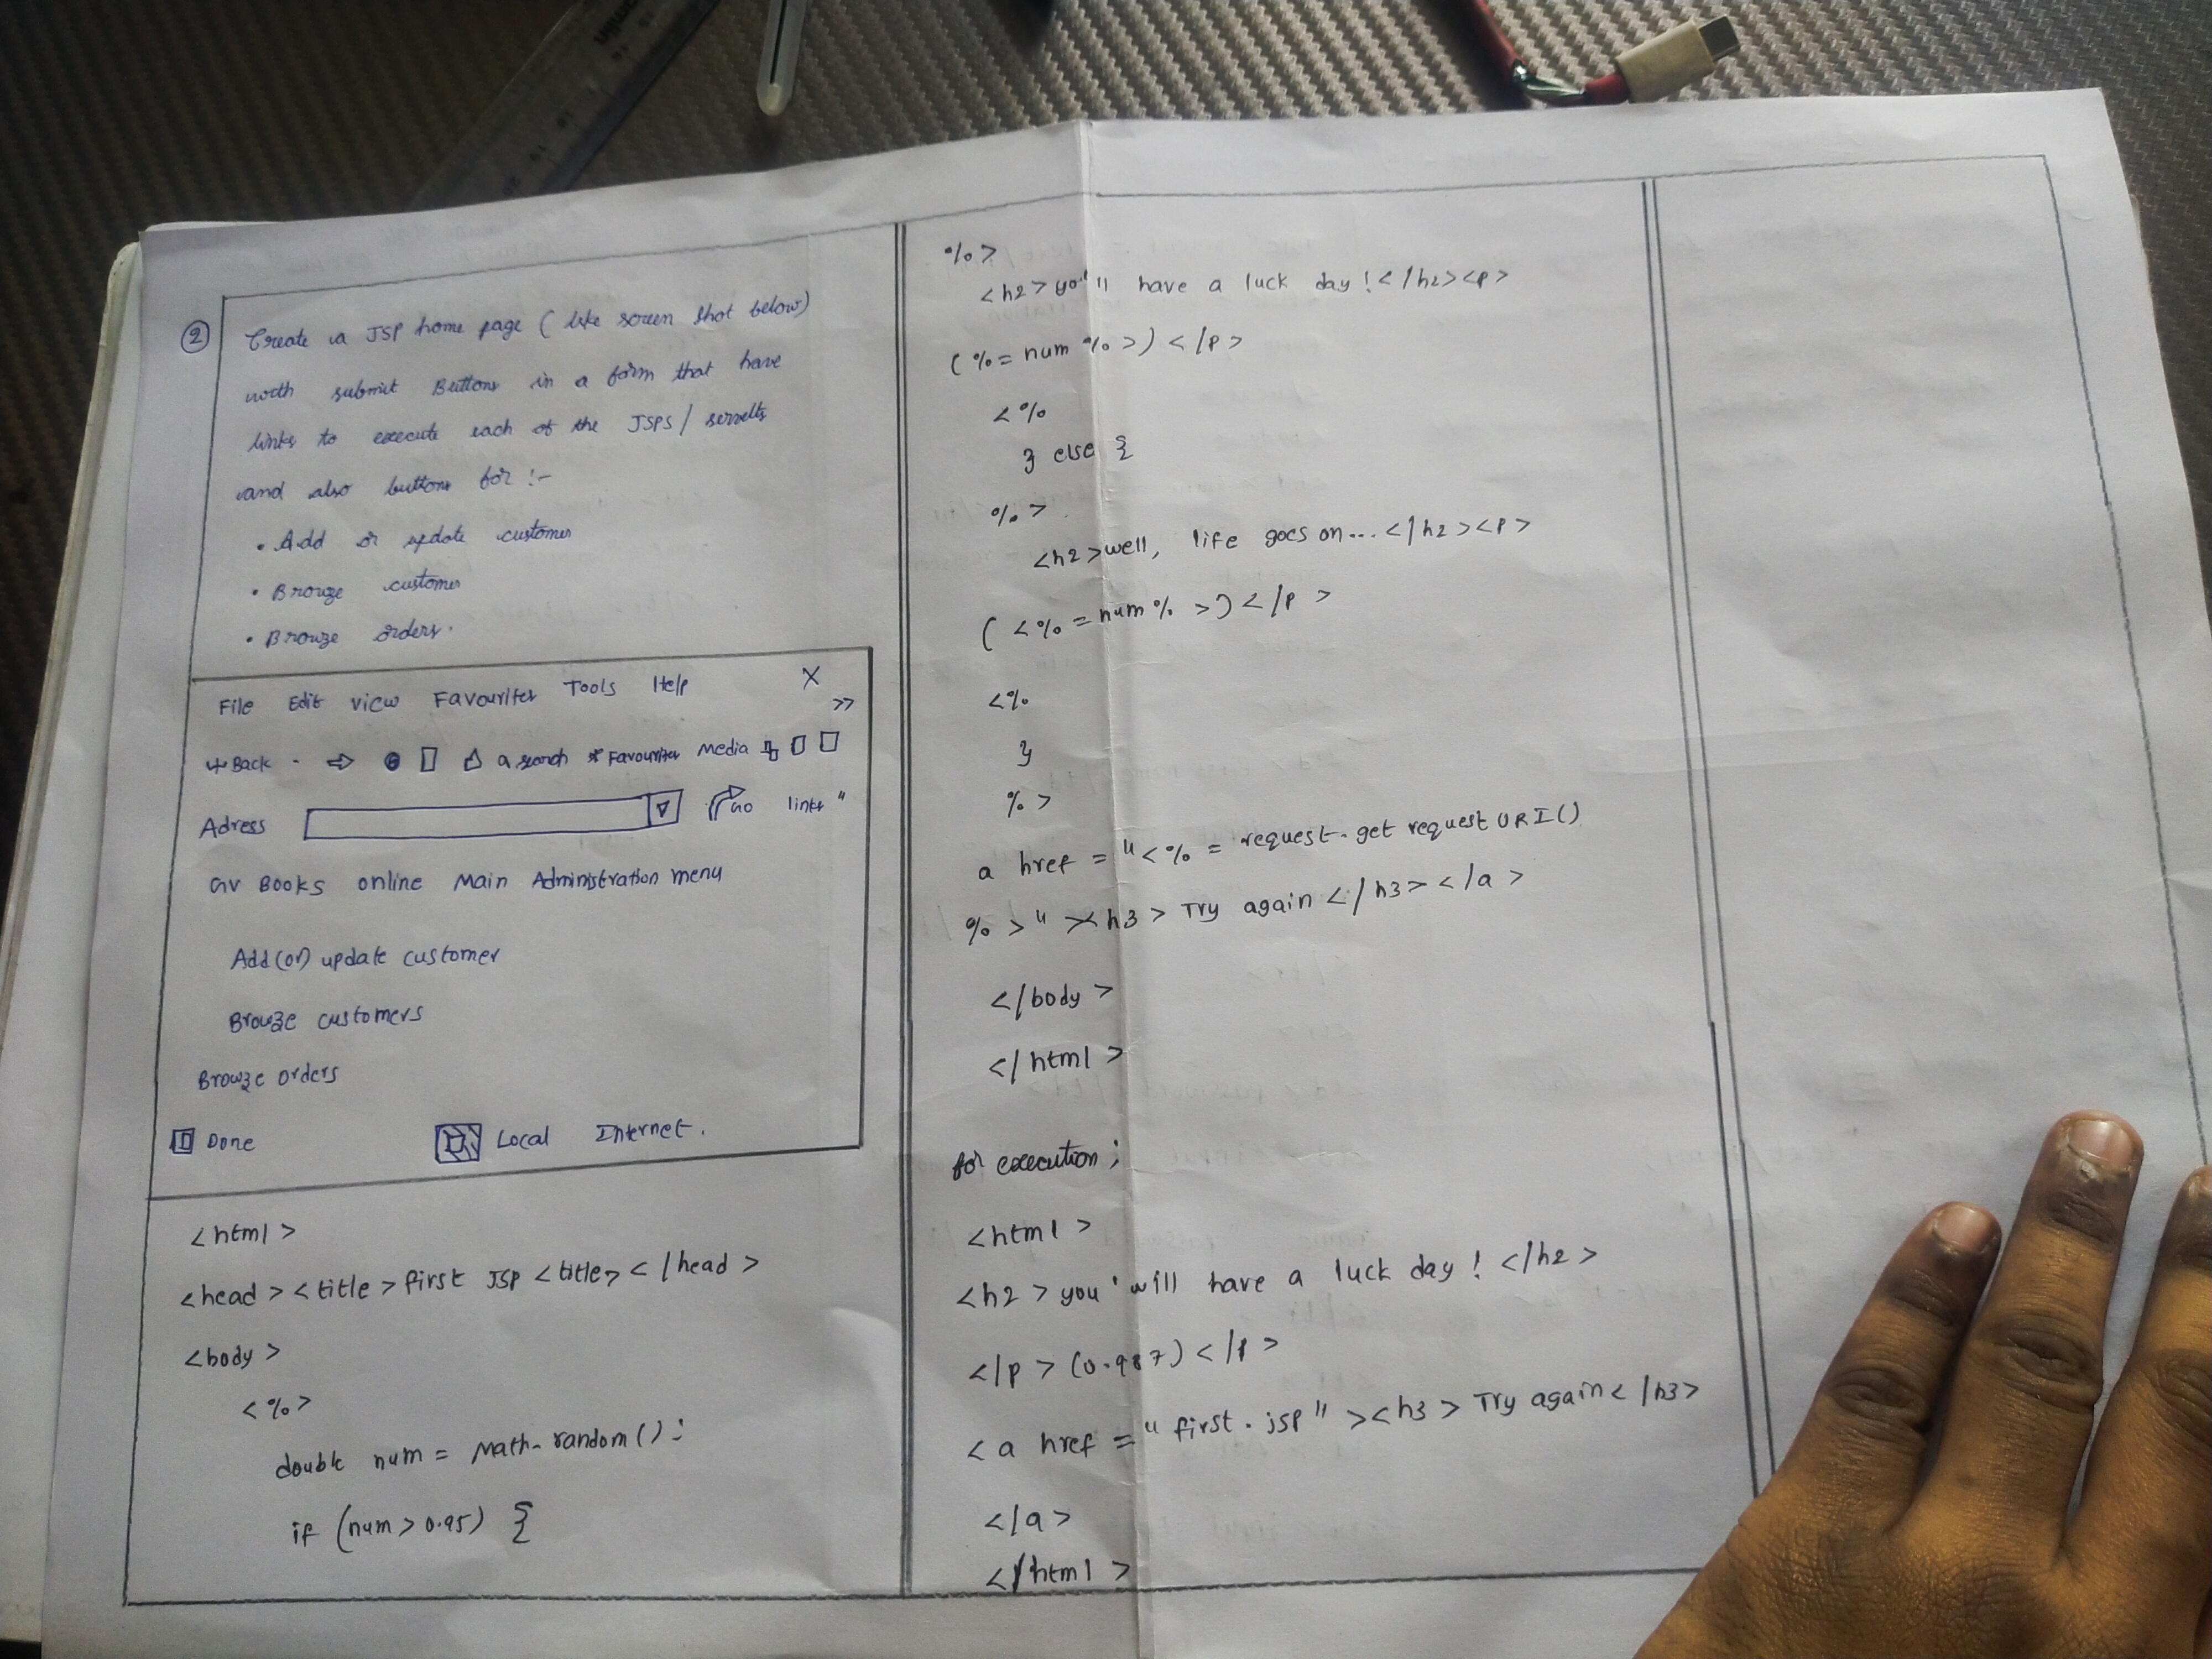 ② Create a JSP home page ( like screen shot below)
with submit Buttons in a form that have
links to execute each of the JSPS / servelts
and also buttons for :-
• Add or update customer
• Browze customer
• Browze orders.
File Edit view Favourites Tools Help X >>
Back - ⇨ search Favourites Media
Adress Go links "
GV Books online Main Administration menu
Add (or) update customer
Browze customers
Browze orders
Done Local Internet.
<html>
<head > <title > first JSP <title> < /head >
<body >
<% >
double num = Math. random () ;
if (num > 0.95) {
% >
<h2 > yo'll have a luck day ! < /h2 > <p >
( % = num % > ) < /p >
<%
} else {
% >
<h2 > well, life goes on ... < /h2 > <p >
( <% = num % > ) < /p >
<%
}
% >
a href = "<% = request. get request URI ()
% > " > <h3 > Try again < /h3 > < /a >
< /body >
< /html >
for execution ;
<html >
<h2 > you' will have a luck day ! < /h2 >
< /p > (0.987) < /p >
< a href = " first. jsp" > <h3 > Try again < /h3 >
< /a >
< /html >